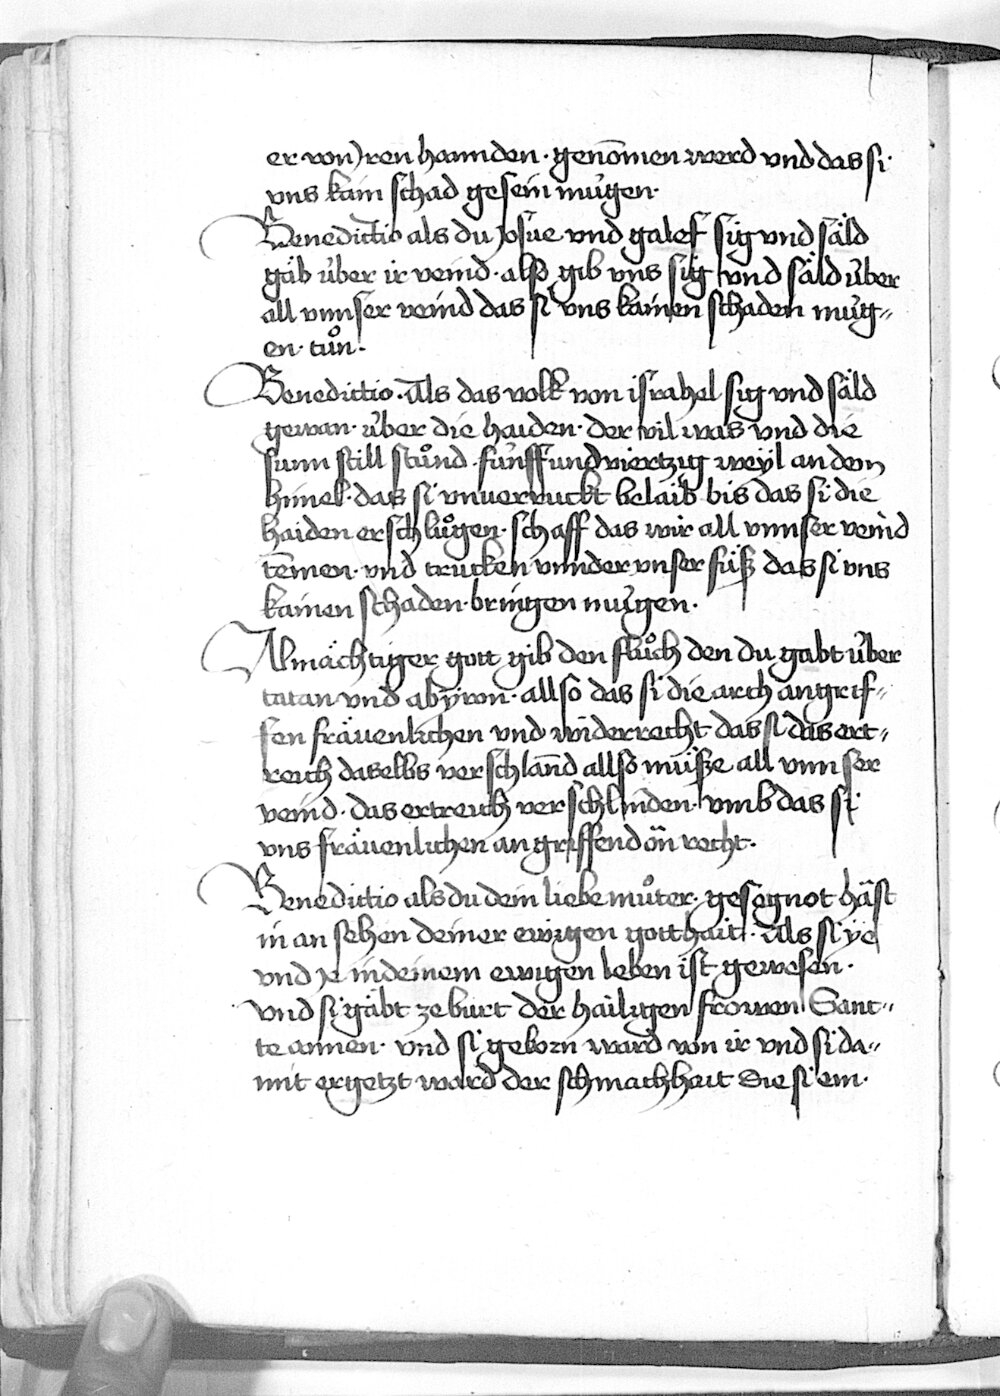 er von jren hannden · genōmen werd vnd das si ·
vns kain schad gesein mu̇gen ·
Benedictio als du Josue vnd galef sig vnd säld
gäb u̇ber ir veind · also gib vns sig vnd säld u̇ber
all vnnser veind das si vns kainen schaden mu̇g〃
en · tuͦn ·
Benedictio · Als das volk von israhel sig vnd säld
gewan · u̇ber die haiden · der vil was vnd die
sunn still stuͦnd · fu̇nffundviertzig weyl an dem
himel · das si vnverruckt belaib bis das si die
haiden erschluͦgen · schaff das wir all vnnser veind
temen · vnd trucken vnnder vnser füß das si vns
kainen schaden · bringen mu̇gen ·
Almächtiger gott gib den fluͦch den du gabt u̇ber
tatan vnd abyron · allso das si die arch angrif〃
fen fräuenlichen vnd widerrecht das si das ert〃
reich daselbs verschland allso müsze all vnnser
veind · das ertreich verschlinden · vmb das si
vns fräuenlichen angriffend ön recht ·
Benedictio als du dein liebe muͦter · gesegnot häst
in an sehen deiner ewigen gotthait · Als si ye
vnd je in deinem ewigen leben ist gewesen ·
vnd si gäbt ze burt der hailigen frowen Sant〃
te annen · vnd si geborn ward von ir vnd si da〃
mit ergetzt ward der schmachhait die si ein ·